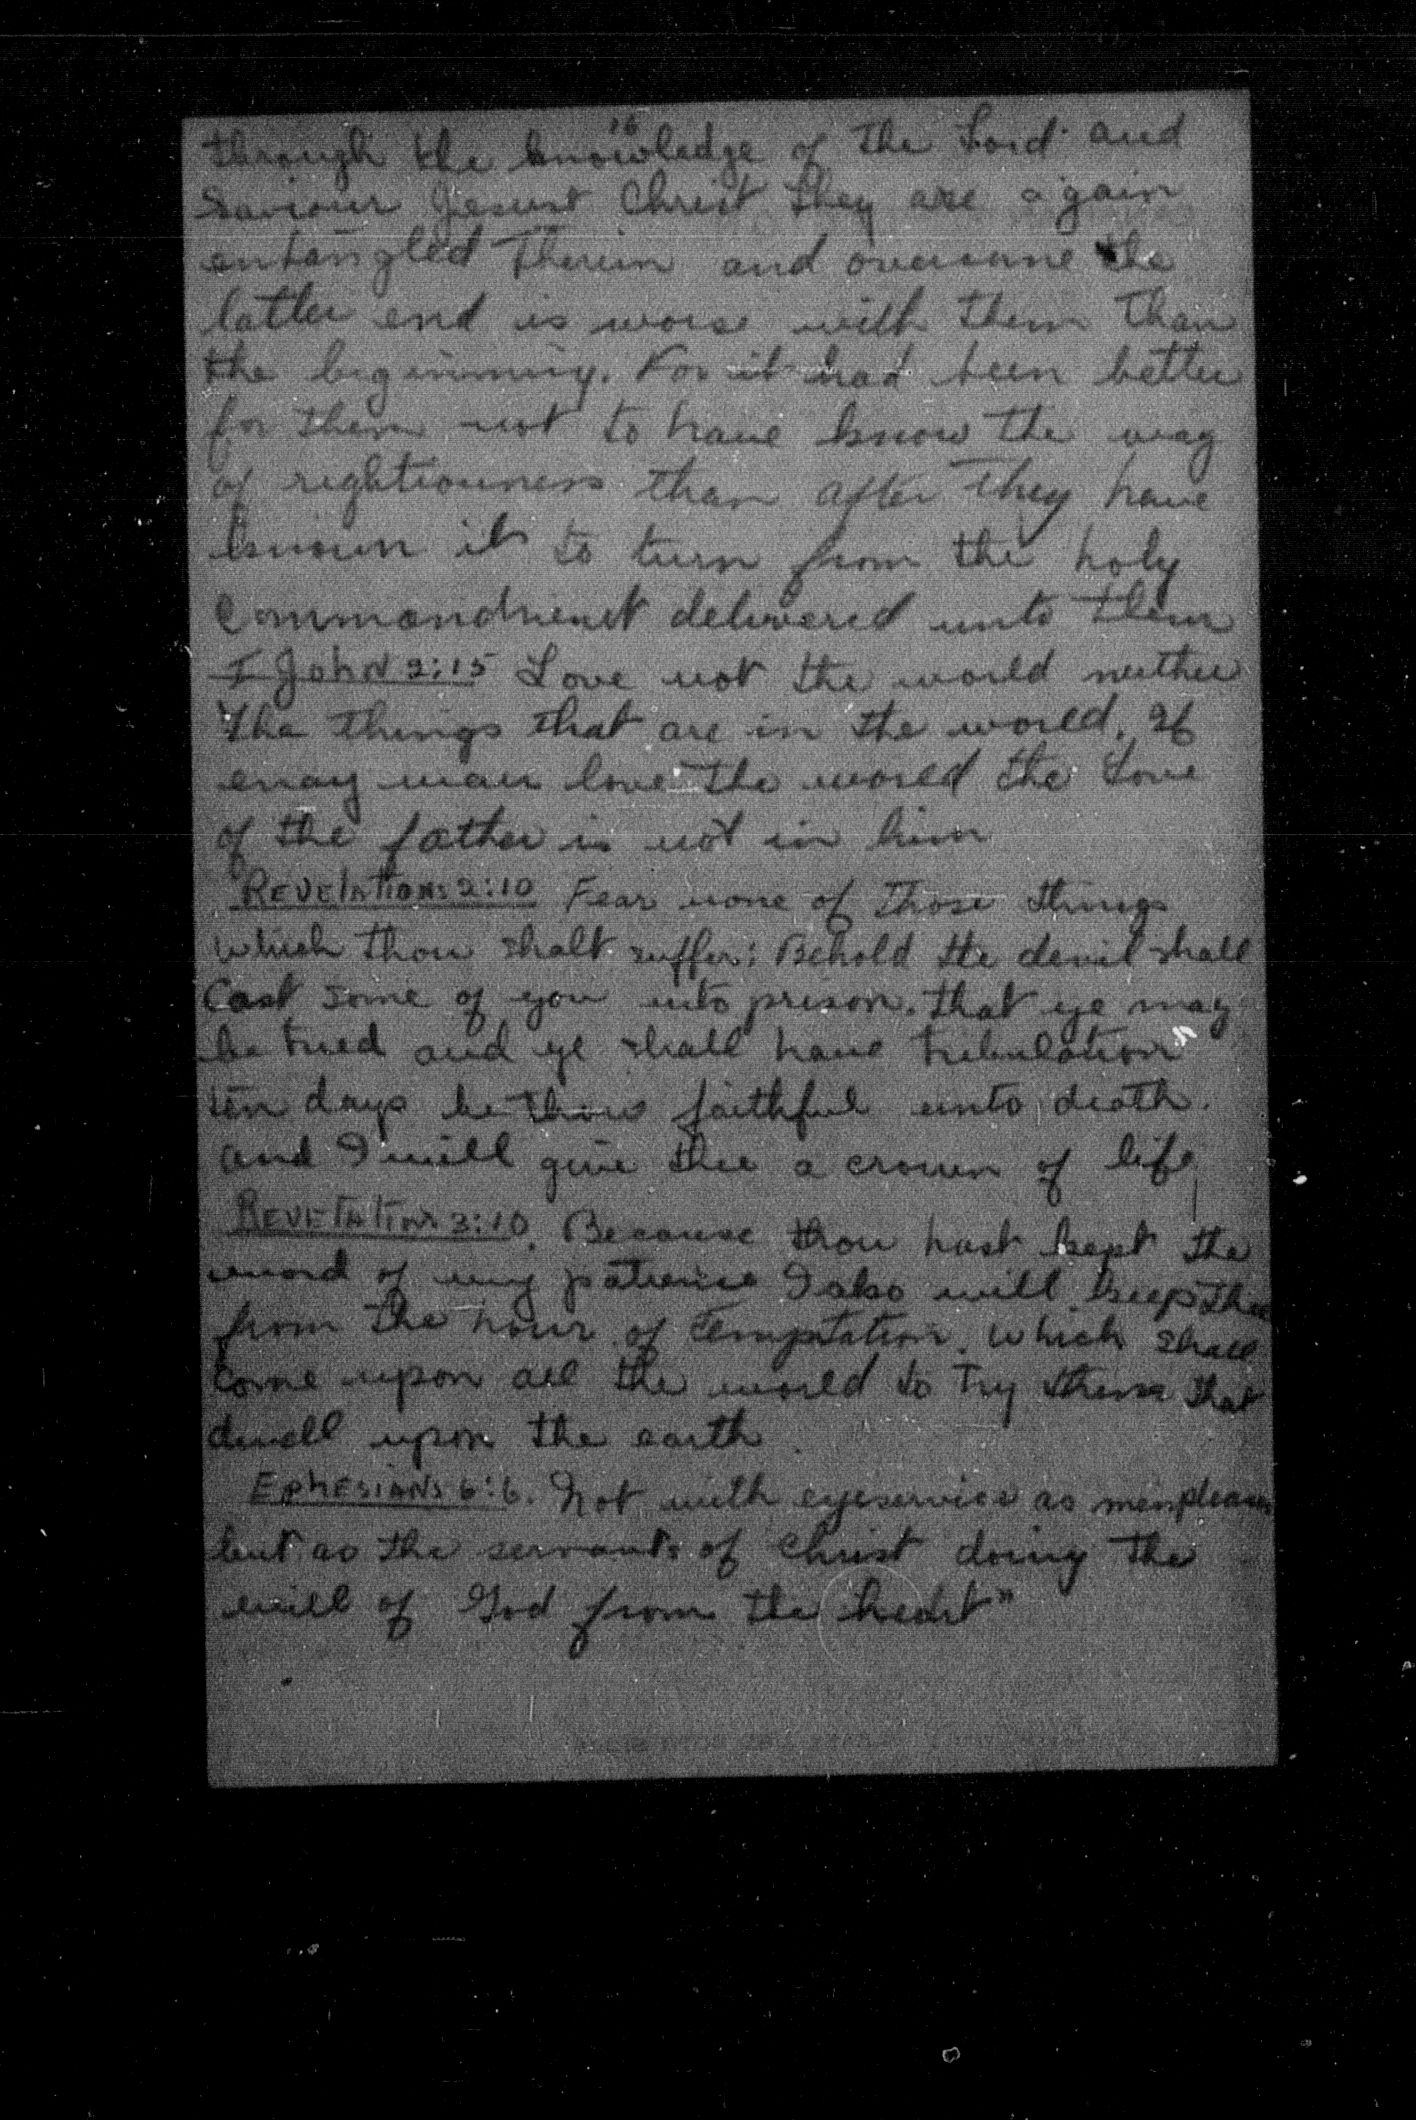 16
through the knowledge of the Lord and
Saviour Jesust Christ they are again
entangled therein and overcome the
latter end is wors with them than
the beginning. For it had been better
for them not to have know the way
of rightiouness than after they have
known it to turn from the holy
Commandment delivered unto them
I John 2:15 Love not the world neither
the things that are in the world. If
enay man love the world the love
of the father is not in him
Revelations 2:10 Fear none of those things
which thou shalt suffer: Behold the devil shall
Cast some of you into prison. that ye may
be tried and ye shall have tribulation
ten days be thou faithful unto death.
and I will give thee a crown of life
Revelations 3:10. Because thou hast kept the
word of my patience I also will keep thee
from the hour of temptation. which shall
come upon all the world to try them that
dwell upon the earth.
Ephesians 6:6. Not with eyeservice as menpleasers
but as the servants of Christ doing the
will of God from the heart"